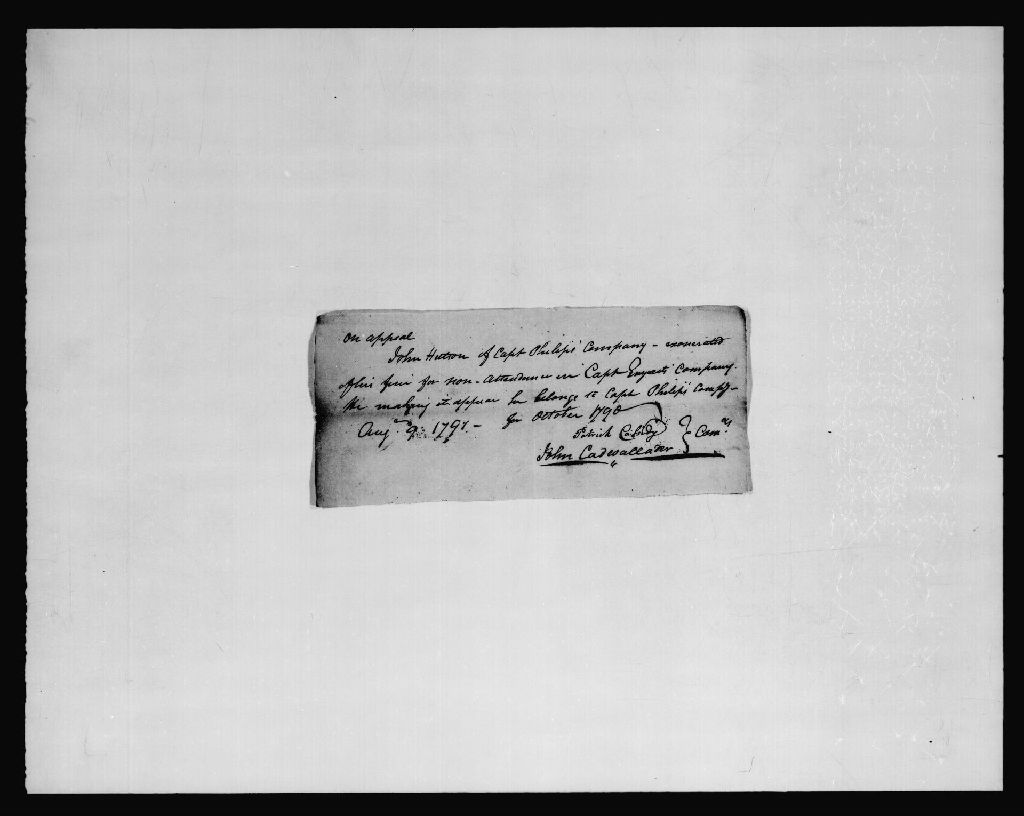 On appeal
John Hutson of Capt Philips' Company - exonerated
of his fine for non-Attendance in Capt Company.
He making it appear he belongs to Capt Philips' Compy -
for October 1790
Augt 9 1791. -
Patrick } Comrs
John Cadwallader